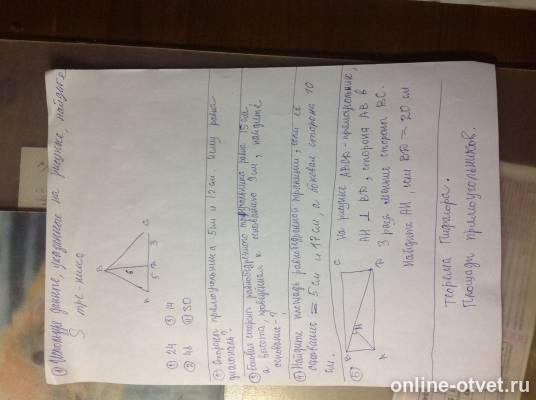 ① Используя данные, указанные на рисунке, найдите
S тре-ника
B
6
A 5 3 C
① 24 ③ 14
② 48 ④ 30
② Стороны прямоугольника 5 см и 12 см. Чему равна
диагональ?
③ Боковая сторона равнобедренного треугольника равна 15 см,
а высота, проведённая к основанию 9 см, найдите
основание-?
④ Найдите площадь равнобедренной трапеции, если её
основание = 5 см и 17 см, а боковая сторона 10
см.
⑤ На рисунке ABCD - прямоугольник,
AH ⊥ BD, сторона AB в
3 раза меньше стороны BC.
Найдите AH, если BD = 20 см
B C
H
A D
Теорема Пифагора.
Площадь прямоугольников.
online-otvet.ru